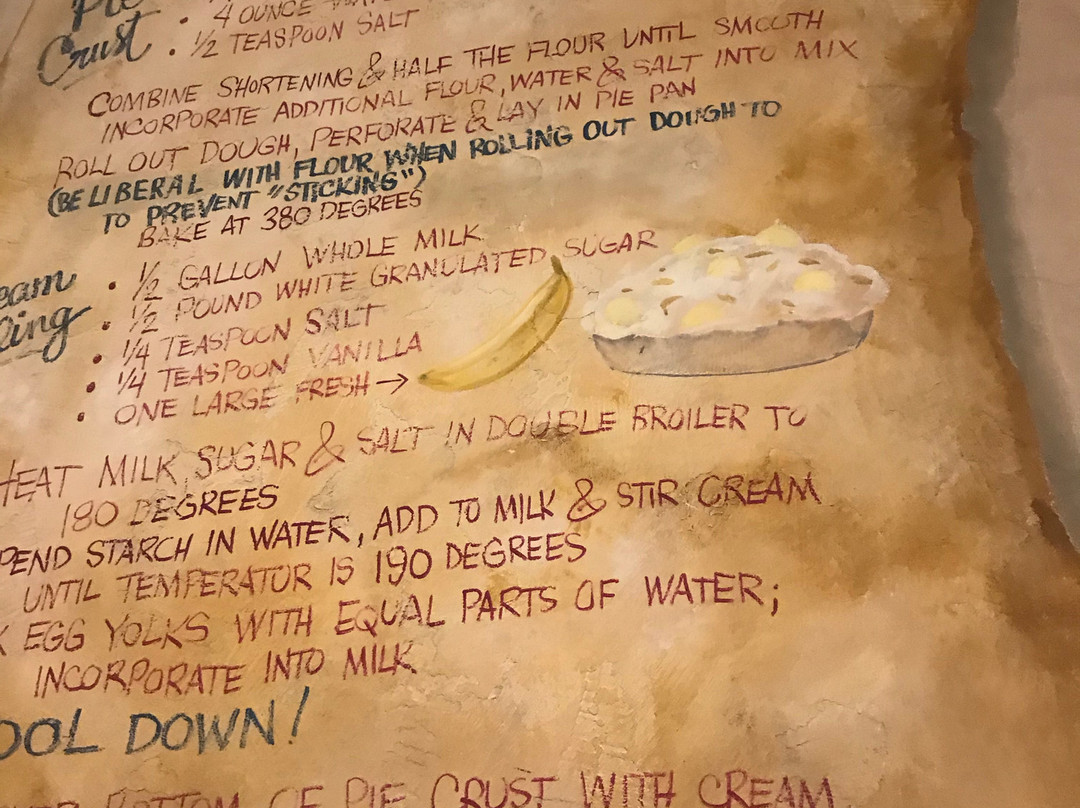 Pie
Crust
• 4 OUNCE
• 1/2 TEASPOON SALT
COMBINE SHORTENING & HALF THE FLOUR UNTIL SMOOTH
INCORPORATE ADDITIONAL FLOUR, WATER & SALT INTO MIX
ROLL OUT DOUGH, PERFORATE & LAY IN PIE PAN
(BE LIBERAL WITH FLOUR WHEN ROLLING OUT DOUGH TO
TO PREVENT "STICKING")
BAKE AT 380 DEGREES
eam
ling
• 1/2 GALLON WHOLE MILK
• 1/2 POUND WHITE GRANULATED SUGAR
• 1/4 TEASPOON SALT
• 1/4 TEASPOON VANILLA
• ONE LARGE FRESH →
HEAT MILK, SUGAR & SALT IN DOUBLE BROILER TO
180 DEGREES
PEND STARCH IN WATER, ADD TO MILK & STIR CREAM
UNTIL TEMPERATUR IS 190 DEGREES
X EGG YOLKS WITH EQUAL PARTS OF WATER;
INCORPORATE INTO MILK
OOL DOWN!
BOTTOM OF PIE CRUST WITH CREAM